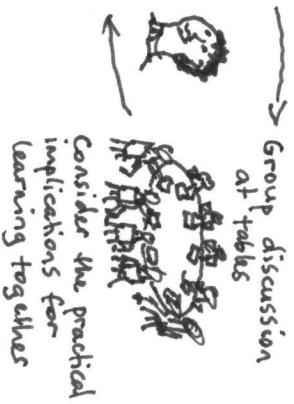 Group discussion
at tables
Consider the practical
implications for
learning together